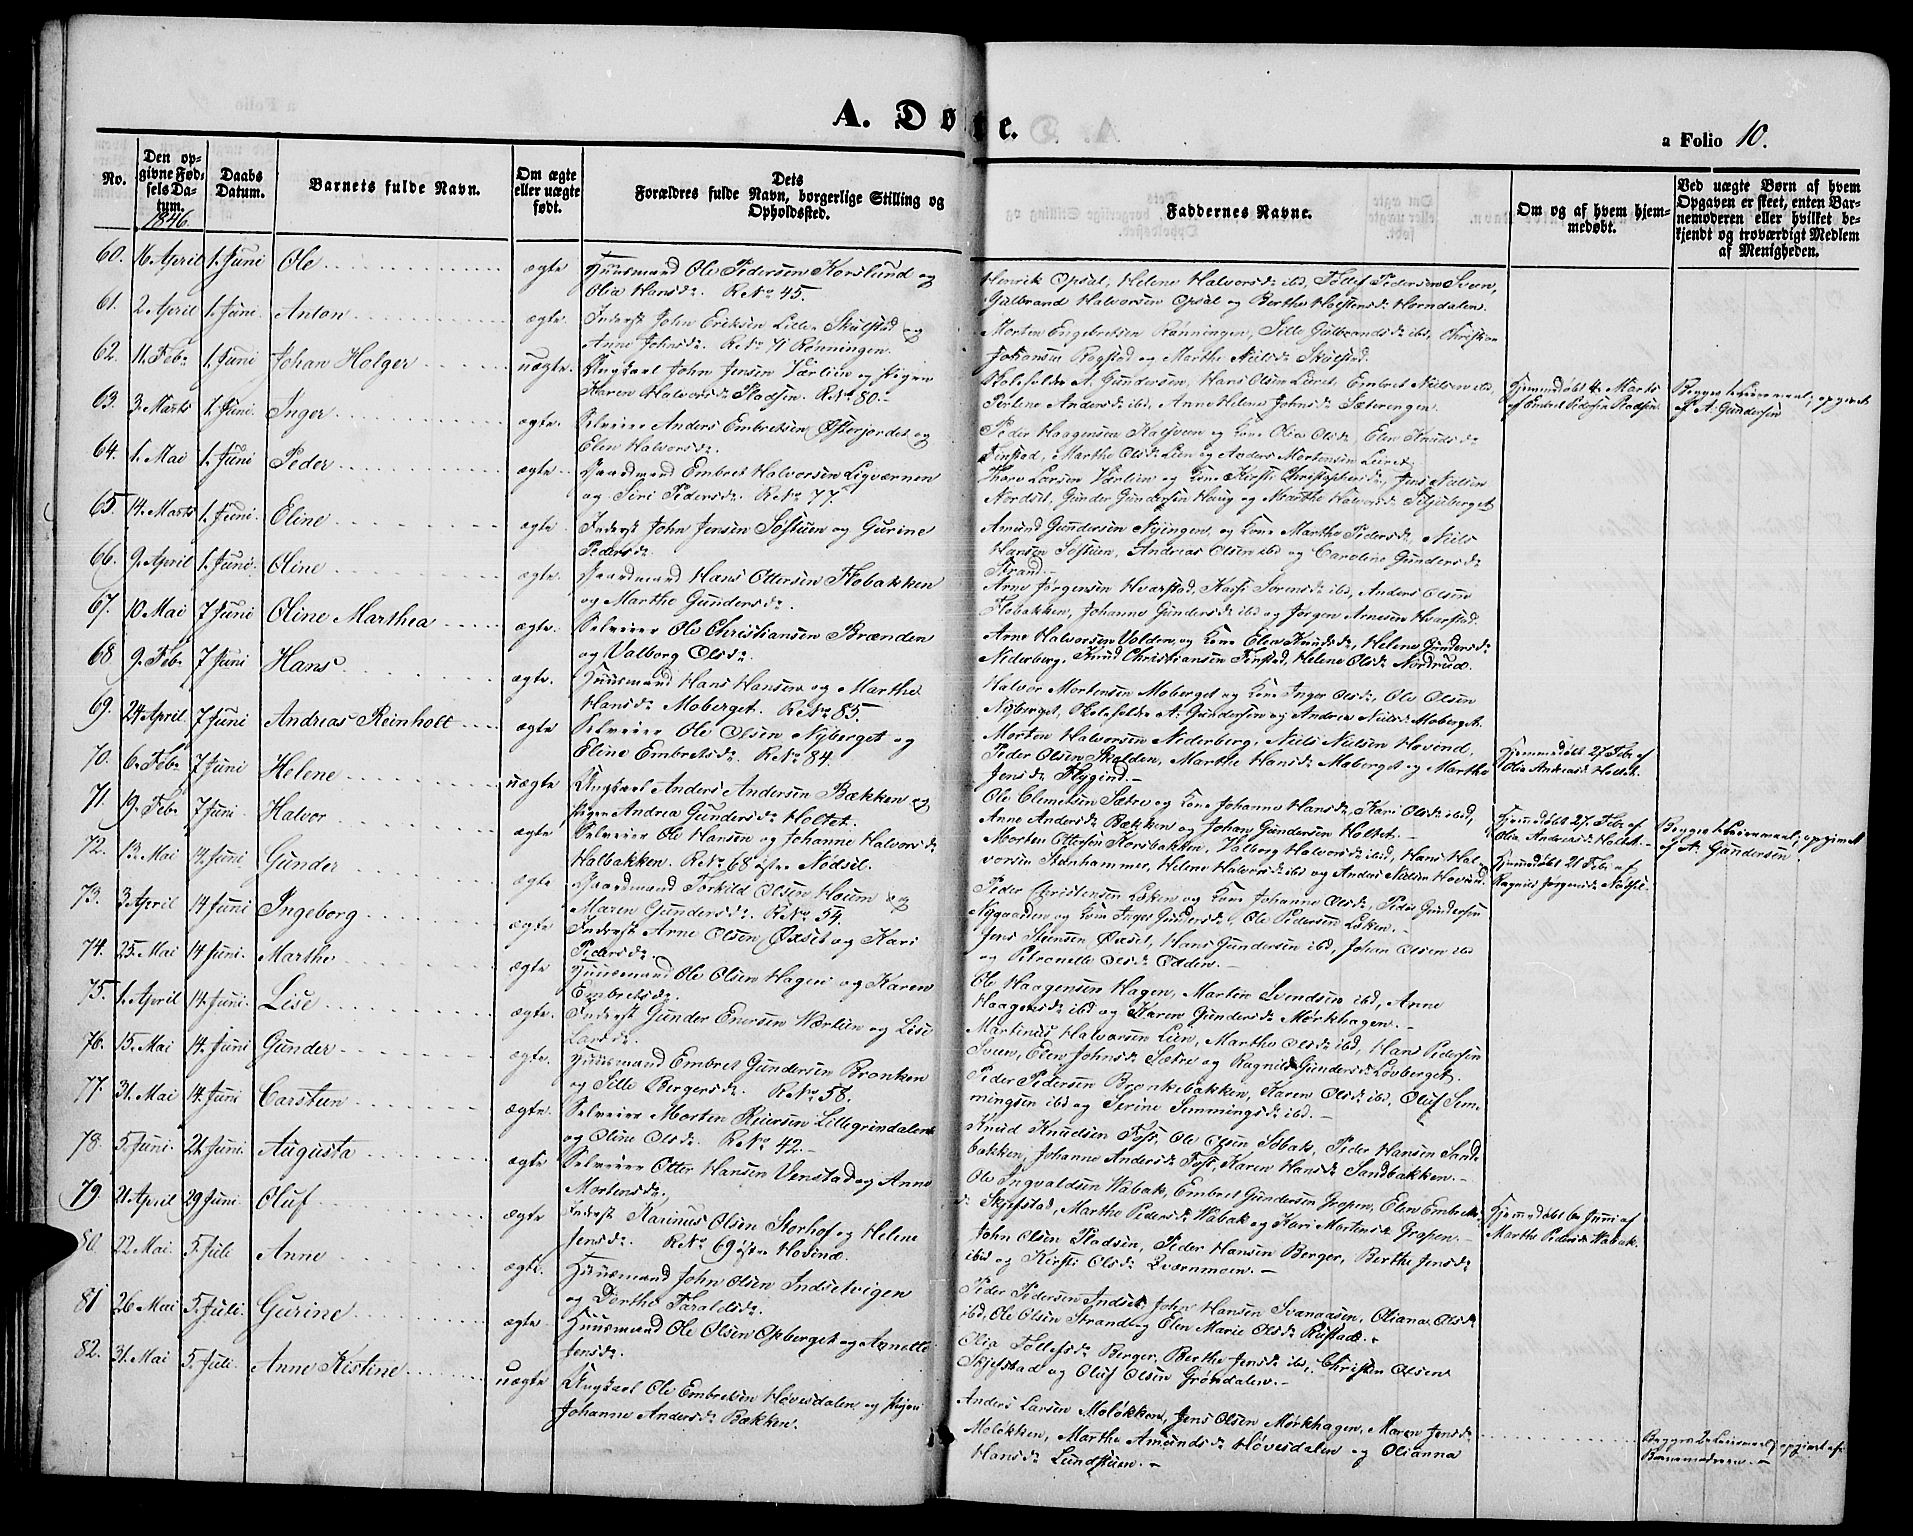 A. Døbte.
a Folio 10.
No.
Den opgivne Fødsels Datum.
1846.
Daabs Datum.
Barnets fulde Navn.
Om ægte eller uægte født.
Dets Forældres fulde Navn, borgerlige Stilling og Opholdssted.
Faddernes Navne.
Om og af hvem hjemmedøbt.
Ved uægte Børn af hvem Opgaven er skeet, enten Barnemoderen eller hvilket bekjendt og troværdigt Medlem af Menigheden.
60. 16 April 1. Juni Ole ægte Huusmand Ole Pedersen Korslund og
Olia Hansd. ReNo 45.
Henrik Opsal, Helene Halvorsd. ibid, Tollef Pedersen Sveen,
Gulbrand Halvorsen Opsal og Berthe Holstensd. Horndalen.
61. 2 April 1. Juni Anton ægte. Inderst John Eriksen Lille Skulstad og
Anne Johnsd. ReNo 71 Rønningen.
Morten Engebretsen Rønningen, Sille Gulbrandsd. ibd, Christian
Johansen Rogstad og Marthe Nielsd. Skulstad.
62. 11. Feb. 1. Juni Johan Holger uægte. Ungkarl John Jensen Værlien og Pigen
Karen Halvorsd. Stadsen. ReNo 80.
Holefolde A. Gundersen, Hans Olsen Lieret, Embret Nielsen ibd,
Perlene Andersd. ibd, Anne Helene Johnsd. Sæterengen.
Hjemmedøbt 4. Marts
af Embret Pedersen Stadsen.
Begges 1. Leiermaal, opgivet
af A. Gundersen
63. 3. Marts 1. Juni. Inger ægte. Selveier Anders Embretsen Østerjordet og
Elen Halvorsd.
Peder Haagensen Kalsveen og Kone Olia Olsd., Elen Knudsd.
Finstad, Marthe Olsd. Lien og Anders Mortensen Lieret.
64. 1. Mai 1. Juni Peder ægte. Gaardmand Embret Halvorsen Ligværnen
og Siri Pedersd. ReNo 77.
Thore Larsen Værlien og Kone Kirsti Christophersd., Jens Nielsen
Nordset, Gunder Gundersen Hovig og Marthe Halvorsd. Stjeberget
65. 14. Marts 1. Juni. Eline ægte. Inderst John Jensen Søstuen og Gurine
Pedersd.
Amund Gundersen Nyingen, og Kone Marthe Pedersd., Niels
Hansen Søstuen, Andreas Olsen ibd og Caroline Gundersd.
Strand.
66. 9. April 1. Juni. Oline ægte. Gaardmand Hans Ottersen Flobakken
og Marthe Gundersd.
Arne Jørgensen Hvarstad, Kasi Sørensd. ibd, Anders Olsen
Flobakken, Johanne Gundersd. ibd og Jørgen Arnesen Hvarstad.
67. 10 Mai 7 Juni Oline Marthea ægte. Selveier Ole Christiansen Brænden
og Valborg Olsd.
Arne Halvorsen Volden, og Kone Elen Knudsd., Helene Gundersd.
Nederberg, Knud Christiansen Finstad, Helene Olsd. Nordrud.
68 9. Feb. 7 Juni Hans ægte. Huusmand Hans Hansen og Marthe
Hansd. Moberget. ReNo 85.
Halvor Mortensen Moberget og Kone Inger Olsd., Ole Olsen
Nyberget, Holefolde A. Gundersen og Andrea Nielsd. Moberget.
69. 24 April. 7 Juni Andreas Reinholt ægte Selveier Ole Olsen Nyberget og
Eline Embretsd. ReNo 84.
Morten Halvorsen Nederberg, Niels Nielsen Hovind,
Peder Olsen Skolden, Marthe Hansd. Moberget og Marthe
Jensd. Flygind.
70. 6. Feb. 7 Juni Helene uægte Ungkarl Anders Andersen Bækken og
Pigen Andrea Gundersd. Holtet.
Ole Clemetsen Sætre og Kone Johanne Hansd., Kari Olsd. ibd,
Anne Andersd. Bækken og Johan Gundersen Holtet.
Hjemmedøbt 27. Feb. af
Olia Andreasd. Holtet.
Begges 1. Leiermaal, opgivet
af A. Gundersen.
71. 19. Feb. 7 Juni. Halvor ægte Selveier Ole Hansen og Johanne Halvorsd.
Halbakken. ReNo 68 østre Nødsil.
Morten Ottersen Korsbakken, Valborg Halvorsd. ibid, Hans Hal-
vorsen Stenhammer, Helene Halvorsd. ibd og Anders Nielsen Hovind.
Hjemmedøbt 27. Feb. af
Olia Andreasd. Holtet.
Hjemmedøbt 21 Feb. af
Ragnild Jørgensd. Nødsil.
72. 13. Mai 14 Juni Gunder ægte Gaardmand Torkild Olsen Houm og
Maren Gundersd. ReNo 54.
Peder Christensen Løken og Kone Johanne Olsd., Peder Gundersen
Nygaarden og Kone Inger Gundersd., Ole Pedersen Løken.
73. 3 April 14 Juni Ingeborg ægte Inderst Arne Olsen Øxset og Kari
Pedersd.
Jens Steensen Øxset, Hans Gundersen ibd, Johan Olsen ibd
og Petronelle Olsd. Odden.
74. 25. Mai 14 Juni. Marthe ægte Huusmand Ole Olsen Hagen og Karen
Embretsd.
Ole Haagensen Hagen, Martin Svendsen ibd, Anne
Haagensd. ibd og Karen Gundersd. Mørkhagen.
75. 1. April 14. Juni. Lise ægte. Inderst Gunder Enersen Værlien og Lise
Larsd.
Martinus Halvorsen Lien, Marthe Olsd. ibd, Hans Pedersen
Sveen, Elen Johnsd. Sætre og Ragnild Gundersd. Løvberget.
76. 15. Mai 14. Juni Gunder ægte. Huusmand Embret Gundersen Bronken
og Sille Bergersd. ReNo 58.
Peder Pedersen Bronkebakken, Karen Olsd. ibd, Oluf Sem-
mingsen ibd og Serine Semmingsd. ibd.
77. 31. Mai 14. Juni Carsten ægte. Selveier Morten Reiersen Lillegrindalen
og Oline Olsd. ReNo 42.
Knud Knudsen Foss, Ole Olsen Søbak, Peder Hansen Sand-
bakken, Johanne Andersd. Foss, Karen Hansd. Sandbakken.
78. 5. Juni. 21. Juni. Augusta ægte Selveier Otter Hansen Venstad og Anne
Mortensd.
Ole Ingvaldsen Wabak, Embret Gundersen Gropen, Elen Embretsd.
Skjefstad, Marthe Pedersd. Wabak og Kari Mortensd. Gropen.
Hjemmedøbt 6. Juni af
Marthe Pedersd. Wabak.
79. 21 April 29 Juni. Oluf ægte Inderst Karinus Olsen Storhof og Helene
Jensd. ReNo 69 østre Hovind.
John Olsen Stadsen, Peder Hansen Berger, Berthe Jensd.
ibid og Kirsti Olsd. Qværnmoen.
80. 22 Mai. 5. Juli Anne ægte. Huusmand John Olsen Indsetvigen
og Dorthe Taraldsd.
Peder Pedersen Indset, John Hansen Svenaasen, Oliana Olsd.
ibd, Ole Olsen Strand og Elen Marie Olsd. Rustad.
81 26 Mai 5. Juli. Gurine ægte. Huusmand Ole Olsen Opberget og Agnette
Jensd.
Olia Tollefsd. Berger, Berthe Jensd. ibd, Christen Olsen
Skjefstad og Oluf Olsen Grøndalen.
82. 31. Mai 5. Juli. Anne Kistine uægte Ungkarl Ole Embretsen Høvesdalen og Pigen
Johanne Andersd. Bakken.
Anders Larsen Moløkken, Jens Olsen Mørkhagen, Maren Jensd.
Moløkken, Marthe Amundsd. Høvesdalen og Olianna
Hansd. Lundstuen.
Begges 2. Leiermaal, opgivet af
Barnemoderen.